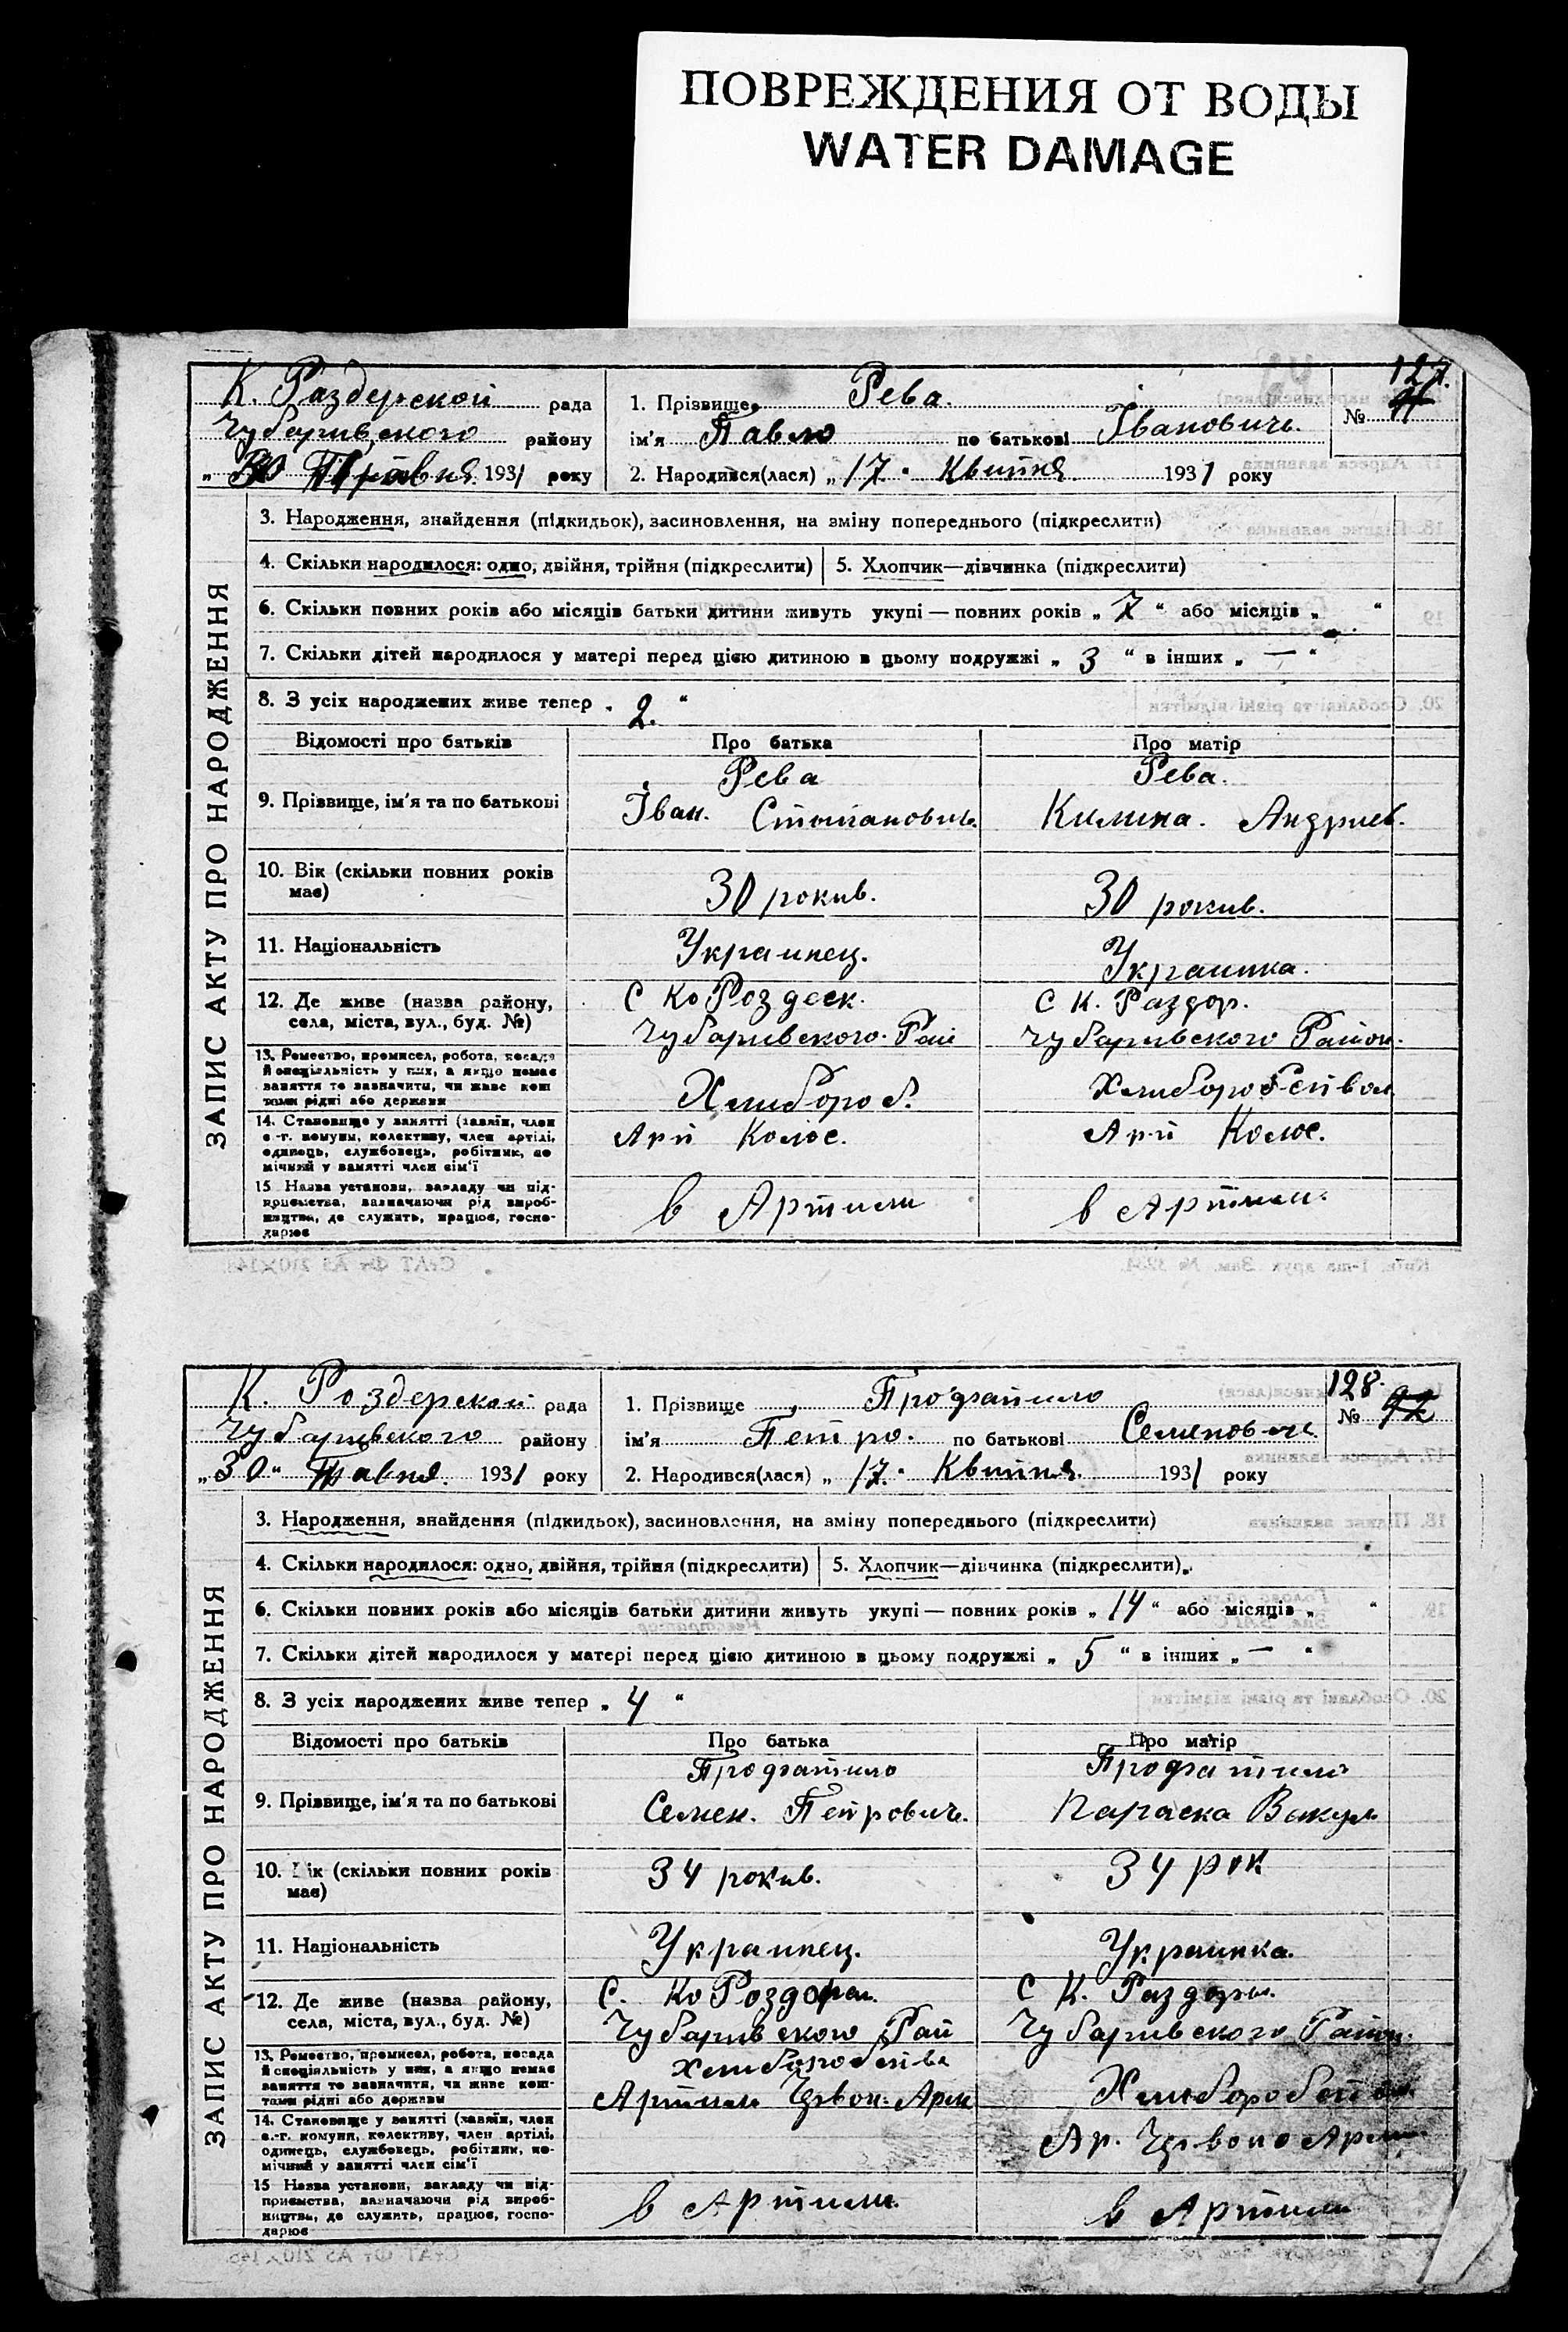 ПОВРЕЖДЕНИЯ ОТ ВОДЫ
WATER DAMAGE
К. Раздерской рада
Чубаривского району
„ 30 Травня 1931 року
1. Прізвище Рева.
ім'я Павло по батькові Іванович.
2. Народився(лася) „ 17 " Квитня 1931 року
127.
№
ЗАПИС АКТУ ПРО НАРОДЖЕННЯ
3. Народження, знайдення (підкидьок), засиновлення, на зміну попереднього (підкреслити)
4. Скільки народилося: одно, двійня, трійня (підкреслити)
5. Хлопчик—дівчинка (підкреслити)
6. Скільки повних років або місяців батьки дитини живуть укупі — повних років „ 7 “ або місяців „ “
7. Скільки дітей народилося у матері перед цією дитиною в цьому подружжі „ 3 “ в інших „ — “
8. З усіх народжених живе тепер „ 2. “
Відомості про батьків Про батька Про матір
Рева Рева.
9. Прізвище, ім'я та по батькові Іван. Килина. Андриев.
10. Вік (скільки повних років має) 30 рокив. 30 рокив.
11. Національність Украинец. Украинка.
12. Де живе (назва району, села, міста, вул., буд. №)
С Ко Роздеск. С К. Раздор.
Чубаривского Рай Чубаривского Район.
13. Ремество, промисел, робота, посада й спеціяльність у них, а якщо немає заняття то зазначити, чи живе коштами рідні або держави
Хлибороб. Хлиборобство
14. Становище у занятті (хазяїн, член с.-г. комуни, колективу, член артілі, одинець, службовець, робітник, помічний у занятті член сім'ї
Арт Колос. Арт Колос.
15 Назва установи, закладу чи підприємства, зазначаючи рід виробництва, де служить, працює, господарює
в Артили в Артили.
К. Роздерской рада
Чубаривского району
„ 30 “ Травня. 1931 року
1. Прізвище Продзатило
ім'я Петро. по батькові Семенович
2. Народився(лася) „ 17 " Квитня. 1931 року
128.
№ 92
ЗАПИС АКТУ ПРО НАРОДЖЕННЯ
3. Народження, знайдення (підкидьок), засиновлення, на зміну попереднього (підкреслити)
4. Скільки народилося: одно, двійня, трійня (підкреслити)
5. Хлопчик—дівчинка (підкреслити)
6. Скільки повних років або місяців батьки дитини живуть укупі — повних років „ 14 “ або місяців „ “
7. Скільки дітей народилося у матері перед цією дитиною в цьому подружжі „ 5 “ в інших „ — “
8. З усіх народжених живе тепер „ 4 “
Відомості про батьків Про батька Про матір
Продзатило Продзатило
9. Прізвище, ім'я та по батькові Семен. Петрович. Параска Вакул
10. Вік (скільки повних років має) 34 рокив. 34 рок
11. Національність Украинец. Украинка.
12. Де живе (назва району, села, міста, вул., буд. №)
С. Ко Роздоры. С К. Раздоры.
Чубаривского Рай Чубаривского Район.
13. Ремество, промисел, робота, посада й спеціяльність у них, а якщо немає заняття то зазначити, чи живе коштами рідні або держави
Хлиборобства
Артиль Червон. Арм Хлиборобство
14. Становище у занятті (хазяїн, член с.-г. комуни, колективу, член артілі, одинець, службовець, робітник, помічний у занятті член сім'ї
Ар. Червоно Арм
15 Назва установи, закладу чи підприємства, зазначаючи рід виробництва, де служить, працює, господарює
в Артили. в Артили